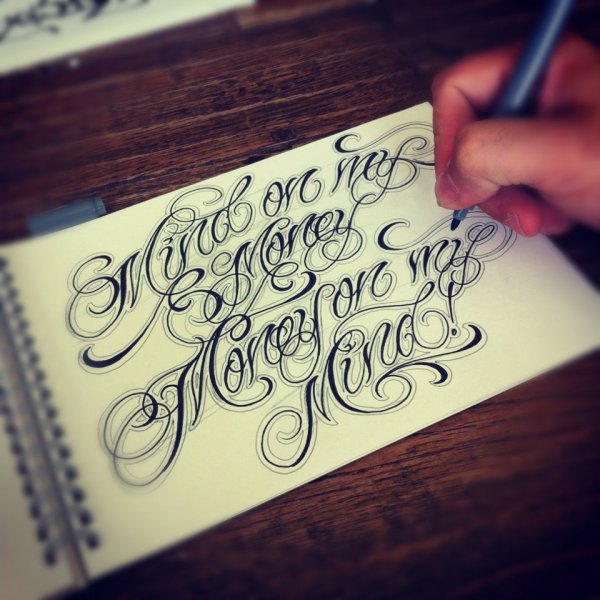 Mind on my
Money
Money on my
Mind!